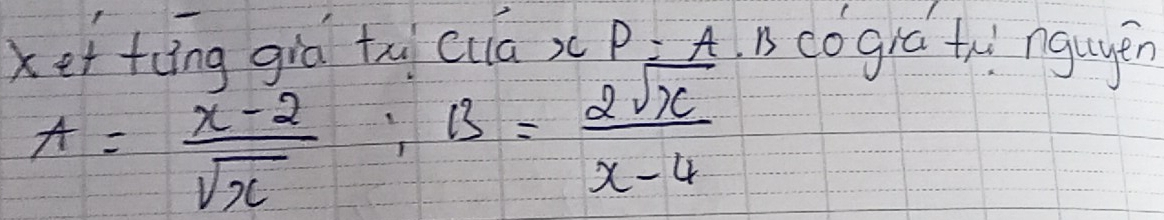 xét từng giá trị của x P = A.B có giá trị nguyên
A = \frac{x-2}{\sqrt{x}} ; B = \frac{2\sqrt{x}}{x-4}